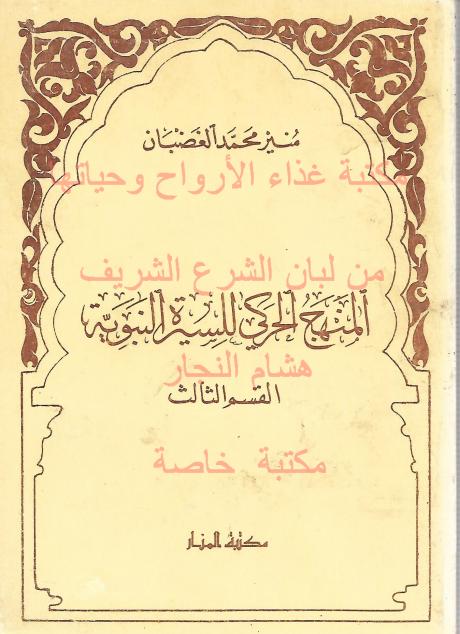 منير محمد الغضبان
مكتبة غذاء الأرواح وحياتها
من لبان الشرع الشريف
المنهج الحركي للسيرة النبوية
هشام النجار
القسم الثالث
مكتبة خاصة
مكتبة المنار